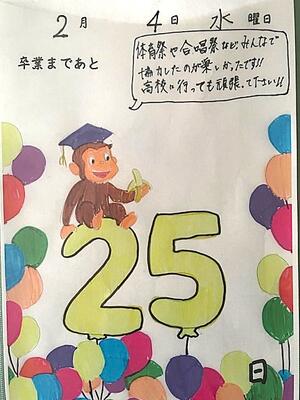 2月 4日 水曜日
体育祭や合唱祭など、みんなで
協力したのが楽しかったです!!
高校に行っても頑張って下さい!!
卒業まであと
25
日